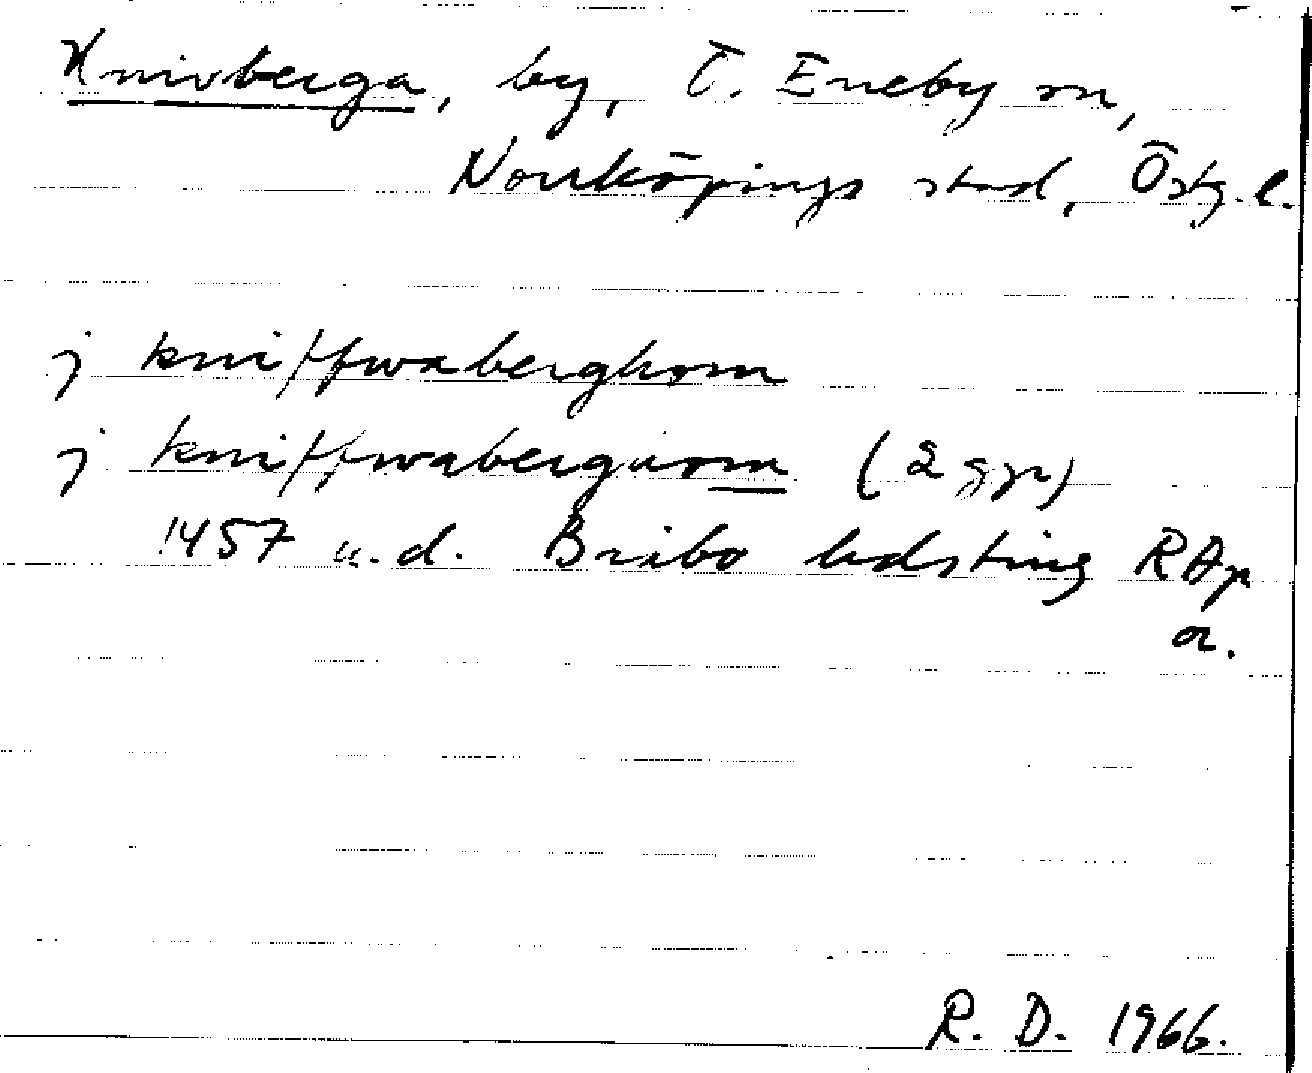 Knivberga, by, Ö. Eneby sn,
Norrköpings stad, Östg. l.
j kniffwaberghom
j kniffwabergom (2 ggr)
1457 u.d. Bråbo hdsting RAp
or.
R. D. 1966.